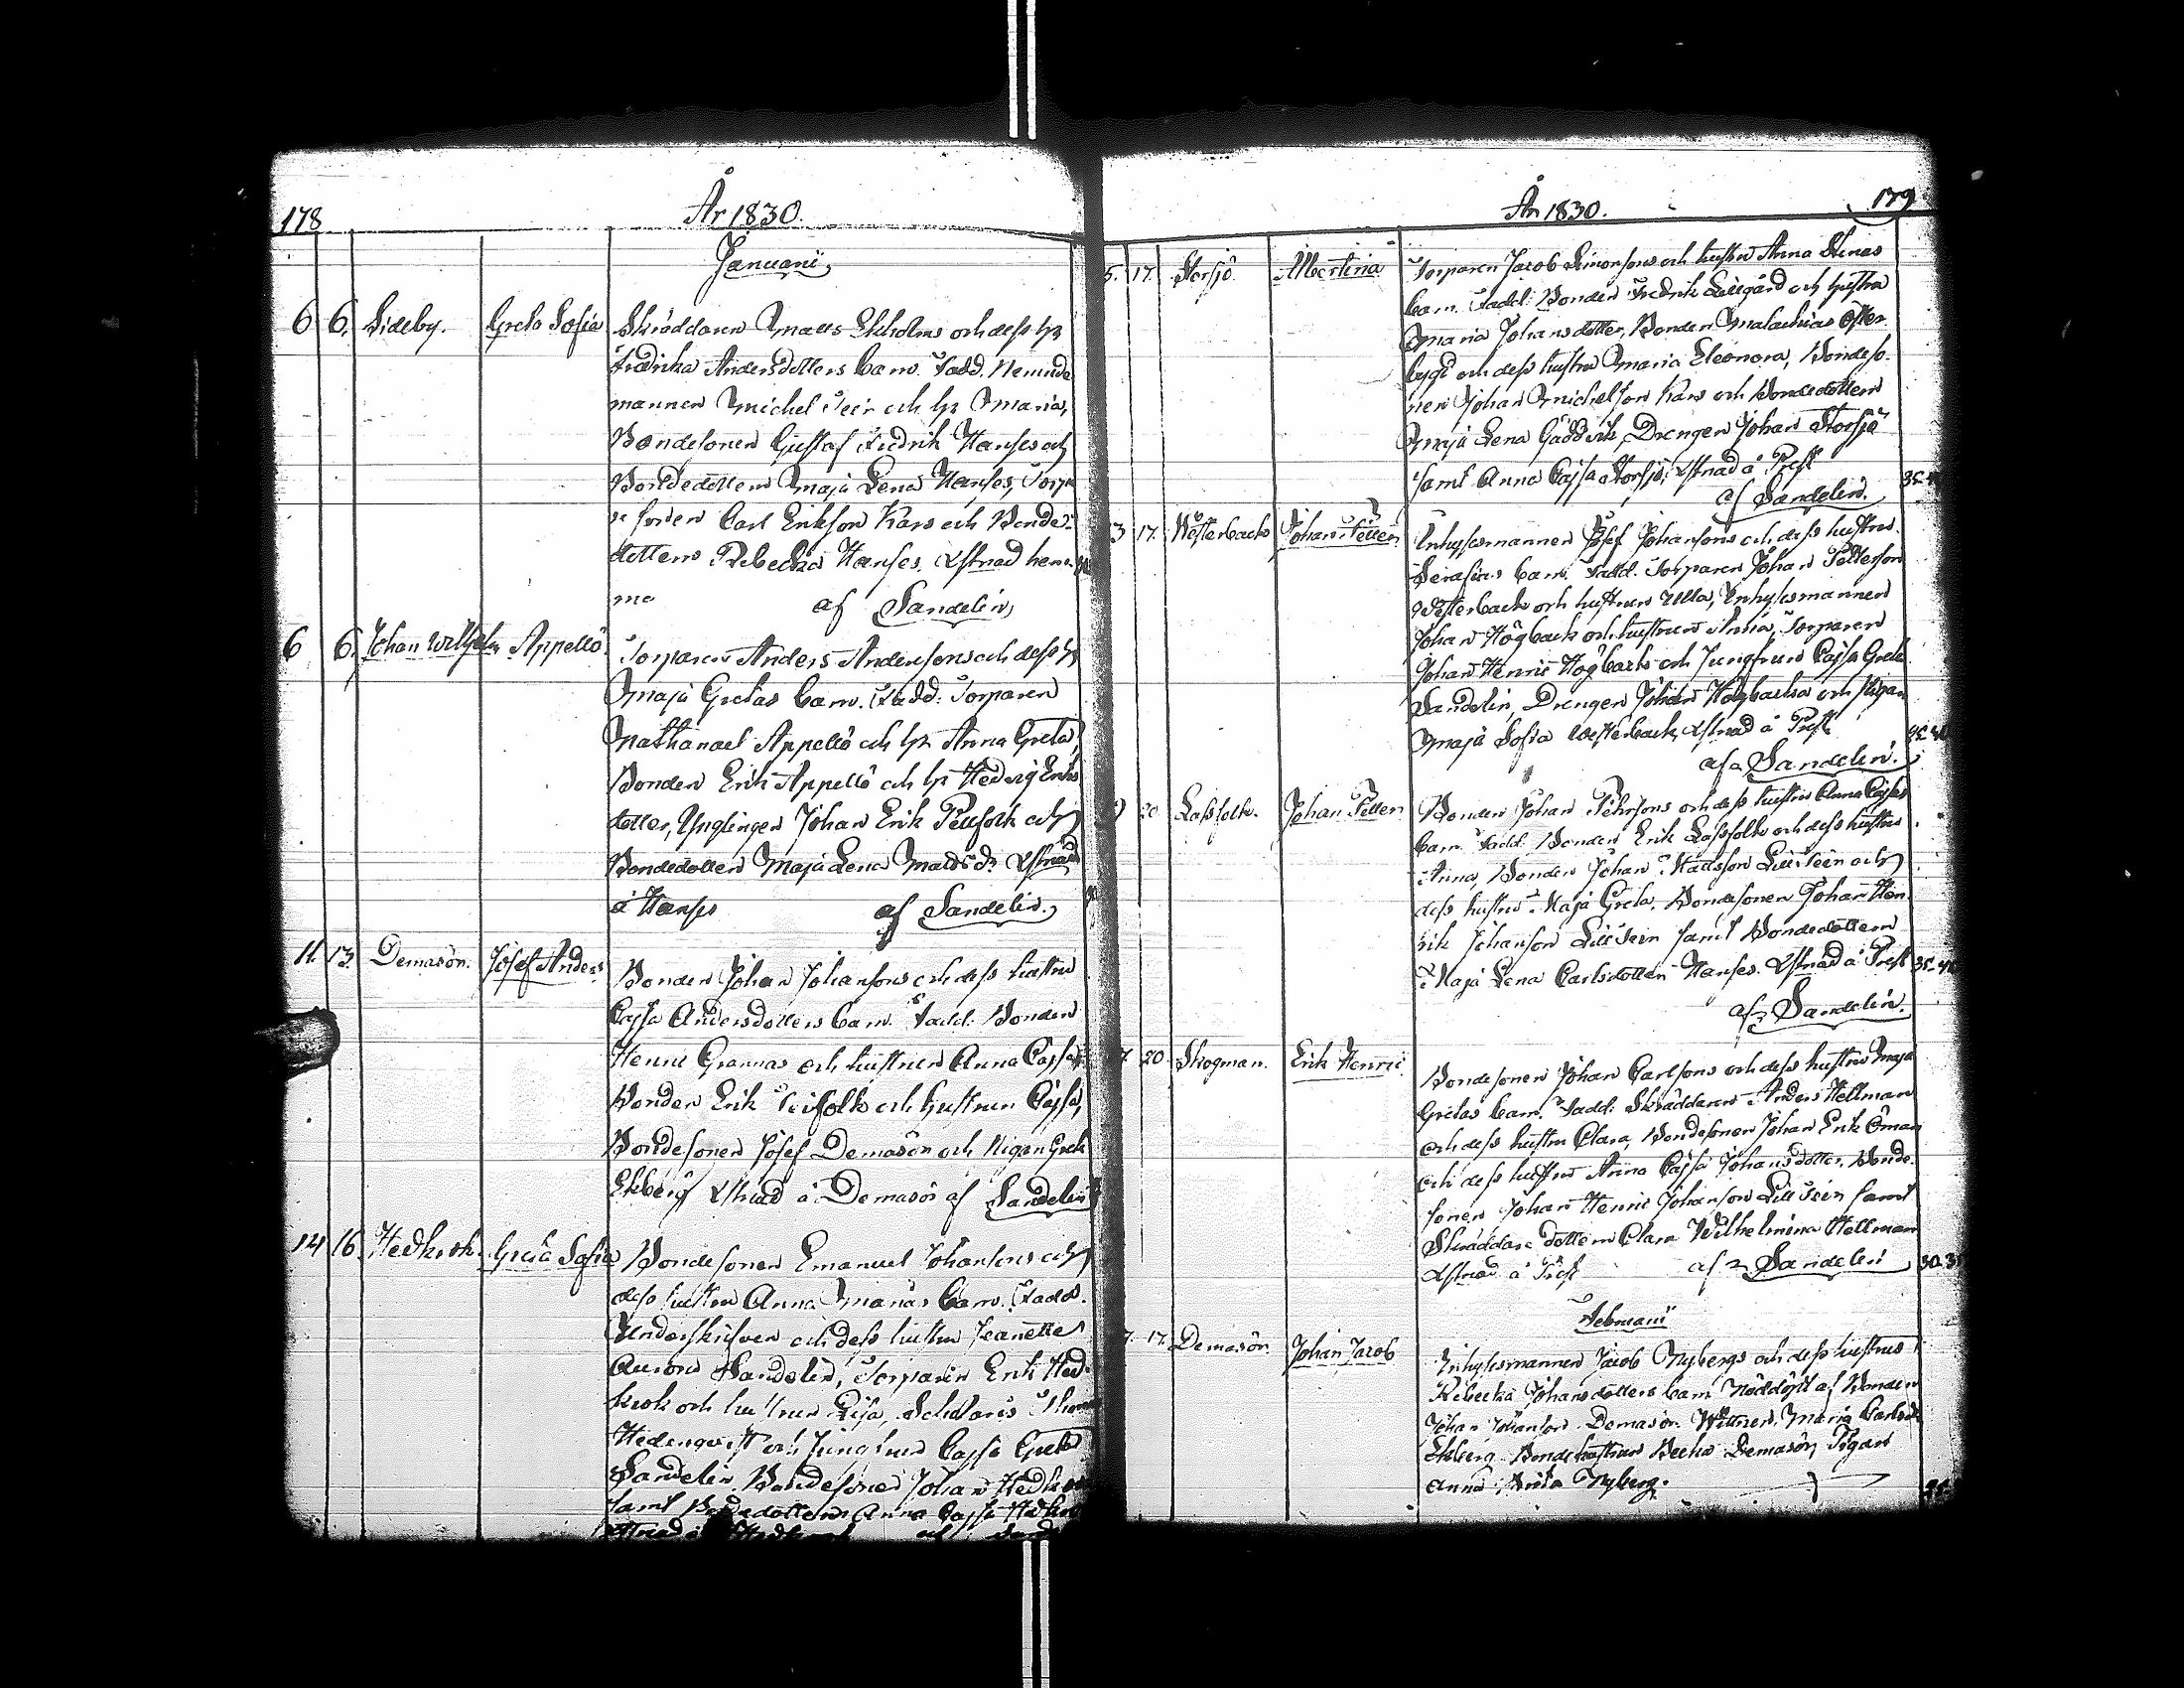 178
År 1830.
Januarii
6 6. Sideby. Greta Sofia Skräddaren Matts Ekholms och dess h:s
Fredrika Andersdotters barn. Fadd. Nemnde
mannen Michel Teir och h:s Maria,
Bondesonen Gustaf Fredrik Hanses och
Bondedottern Maja Lena Hanses, Torpa
re sonen Carl Erikson Kars och Bonde-
dottern Rebecka Hanses. Xstnad hem-
ma af Sandelin
6 6. Johan Wilhelm Appellö. Torparen Anders Andersons och dess h:s
Maja Gretas barn. Fadd: Torparen
Nathanael Appellö och h:s Anna Greta,
Bonden Erik Appellö och h:s Hedvig Eriks
dotter, Ynglingen Johan Erik Pellfolk och
Bondedottern Maja Lena Mattsdr Xstnad
å Hanses af Sandelin.
11. 13. Demasön. Josef Anders Bonden Johan Johansons och dess hustru
Cajsa Andersdotters barn. Fadd: Bonden
Henric Grannas och hustrun Anna Cajsa,
Bonden Erik Teifolk och hustrun Cajsa,
Bondesonen Josef Demasön och Pigan Greta
Ekberg Xstnad å Demasön af Sandelin
14 16. Hedkrok. Greta Sofia Bondesonen Emanuel Johansons och
dess hustru Anna Marias barn. Fadd.
Underskrifven och dess hustru Jeanette
Aurora Sandelin, Torparen Erik Hed-
krok och hustrun Lisa, Scholaris
Hedenqvist och Jungfrun Cajsa Greta
Sandelin, Bondesonen Johan Hedkrok
samt Bondedottern Anna Cajsa
179
År 1830.
5. 17. Storsjö. Albertina Torparen Jacob Simonsons och hustru Anna Stinas
barn. Fadd: Bonden Fredrik Lillgård och hustru
Maria Johansdotter, Bonden Malachias Öster-
bygd och dess hustru Maria Eleonora, Bondeso-
nen Johan Michelson Kars och Bondedottern
Maja Lena Gäddvik, Drengen Johan Storsjö
samt Anna Cajsa Storsjö; Xstnad å Prest
af Sandelin.
3 17. Westerback Johan Petter Inhysesmannen Josef Johansons och dess hustrus
Serafias barn. Fadd. Torparen Johan Petterson
Westerback och hustrun Ulla, Inhysesmannen
Johan Högback och hustrun Anna, Torparen
Johan Henric Högback och Jungfrun Cajsa Greta
Sandelin, Drengen Johan Högbacka och Pigan
Maja Sofia Westerback. Xstnad å Prest
af Sandelin.
20 Lassfolk. Johan Petter Bonden Johan Pehrsons och dess hustru Anna Cajsas
barn. Fadd. Bonden Erik Lassfolk och dess hustru
Anna, Bonden Johan Mattsson Lillteir och
dess hustru Maja Greta. Bondesonen Johan Hen-
rik Johanson Lillteir samt Bondedottern
Maja Lena Carlsdotter Hanses. Xstnad å Prest
af Sandelin.
20. Skogman. Erik Henric Bondesonen Johan Carlsons och dess hustru Maja
Gretas barn. Fadd: Skräddaren Anders Hellman
och dess hustru Clara, Bondesonen Johan Erik Öman
och dess hustru Anna Cajsa Johansdotter, Bonde-
sonen Johan Henric Johanson Lillteir samt
Skräddaredottern Clara Wilhelmina Hellman
Xstnad å Prest af Sandelin
Februarii
7. 17. Demasön. Johan Jacob Inhysesmannen Jacob Nybergs och dess hustrus
Rebecka Johansdotters barn Nöddöpt af Bonden
Johan Johanson Demasön. Wittnen, Maria Carlsdr
Ekberg Bondehustrun Becka Demasön, Pigan
Anna Brita Nyberg.